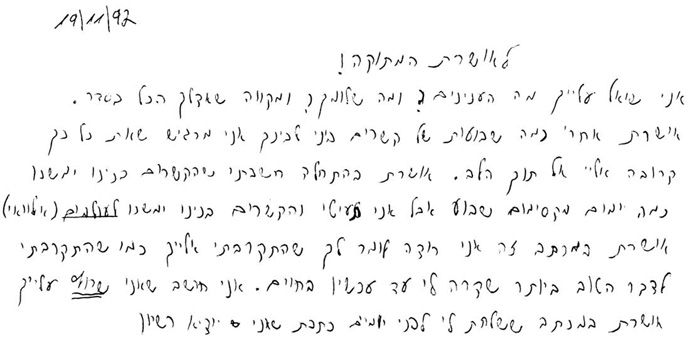 19/11/92
לאושרת המתוקה!
אני שואל עלייך מה הענינים? ומה שלומך? ומקווה שאצלך הכל בסדר.
אושרת אחרי כמה שבועות של קשרים ביני לבינך אני מרגיש שאת כל כך
קרובה אליי אל תוך הלב. אושרת בהתחלה חשבתי שהקשרים בנינו ימשכו
כמה ימים מקסימום שבוע אבל אני טעיתי והקשרים בנינו ימשכו לעולמים (אילוואי)
אושרת במכתב זה אני רוצה לומר לך שהתקרבתי אלייך כמו שהתקרבתי
לדבר הטוב ביותר שקרה לי עד עכשיו בחיים. אני חושב שאני עלייך
אושרת במכתב ששלחת לי לפני יומיים כתבת שאני יוציא רשיון